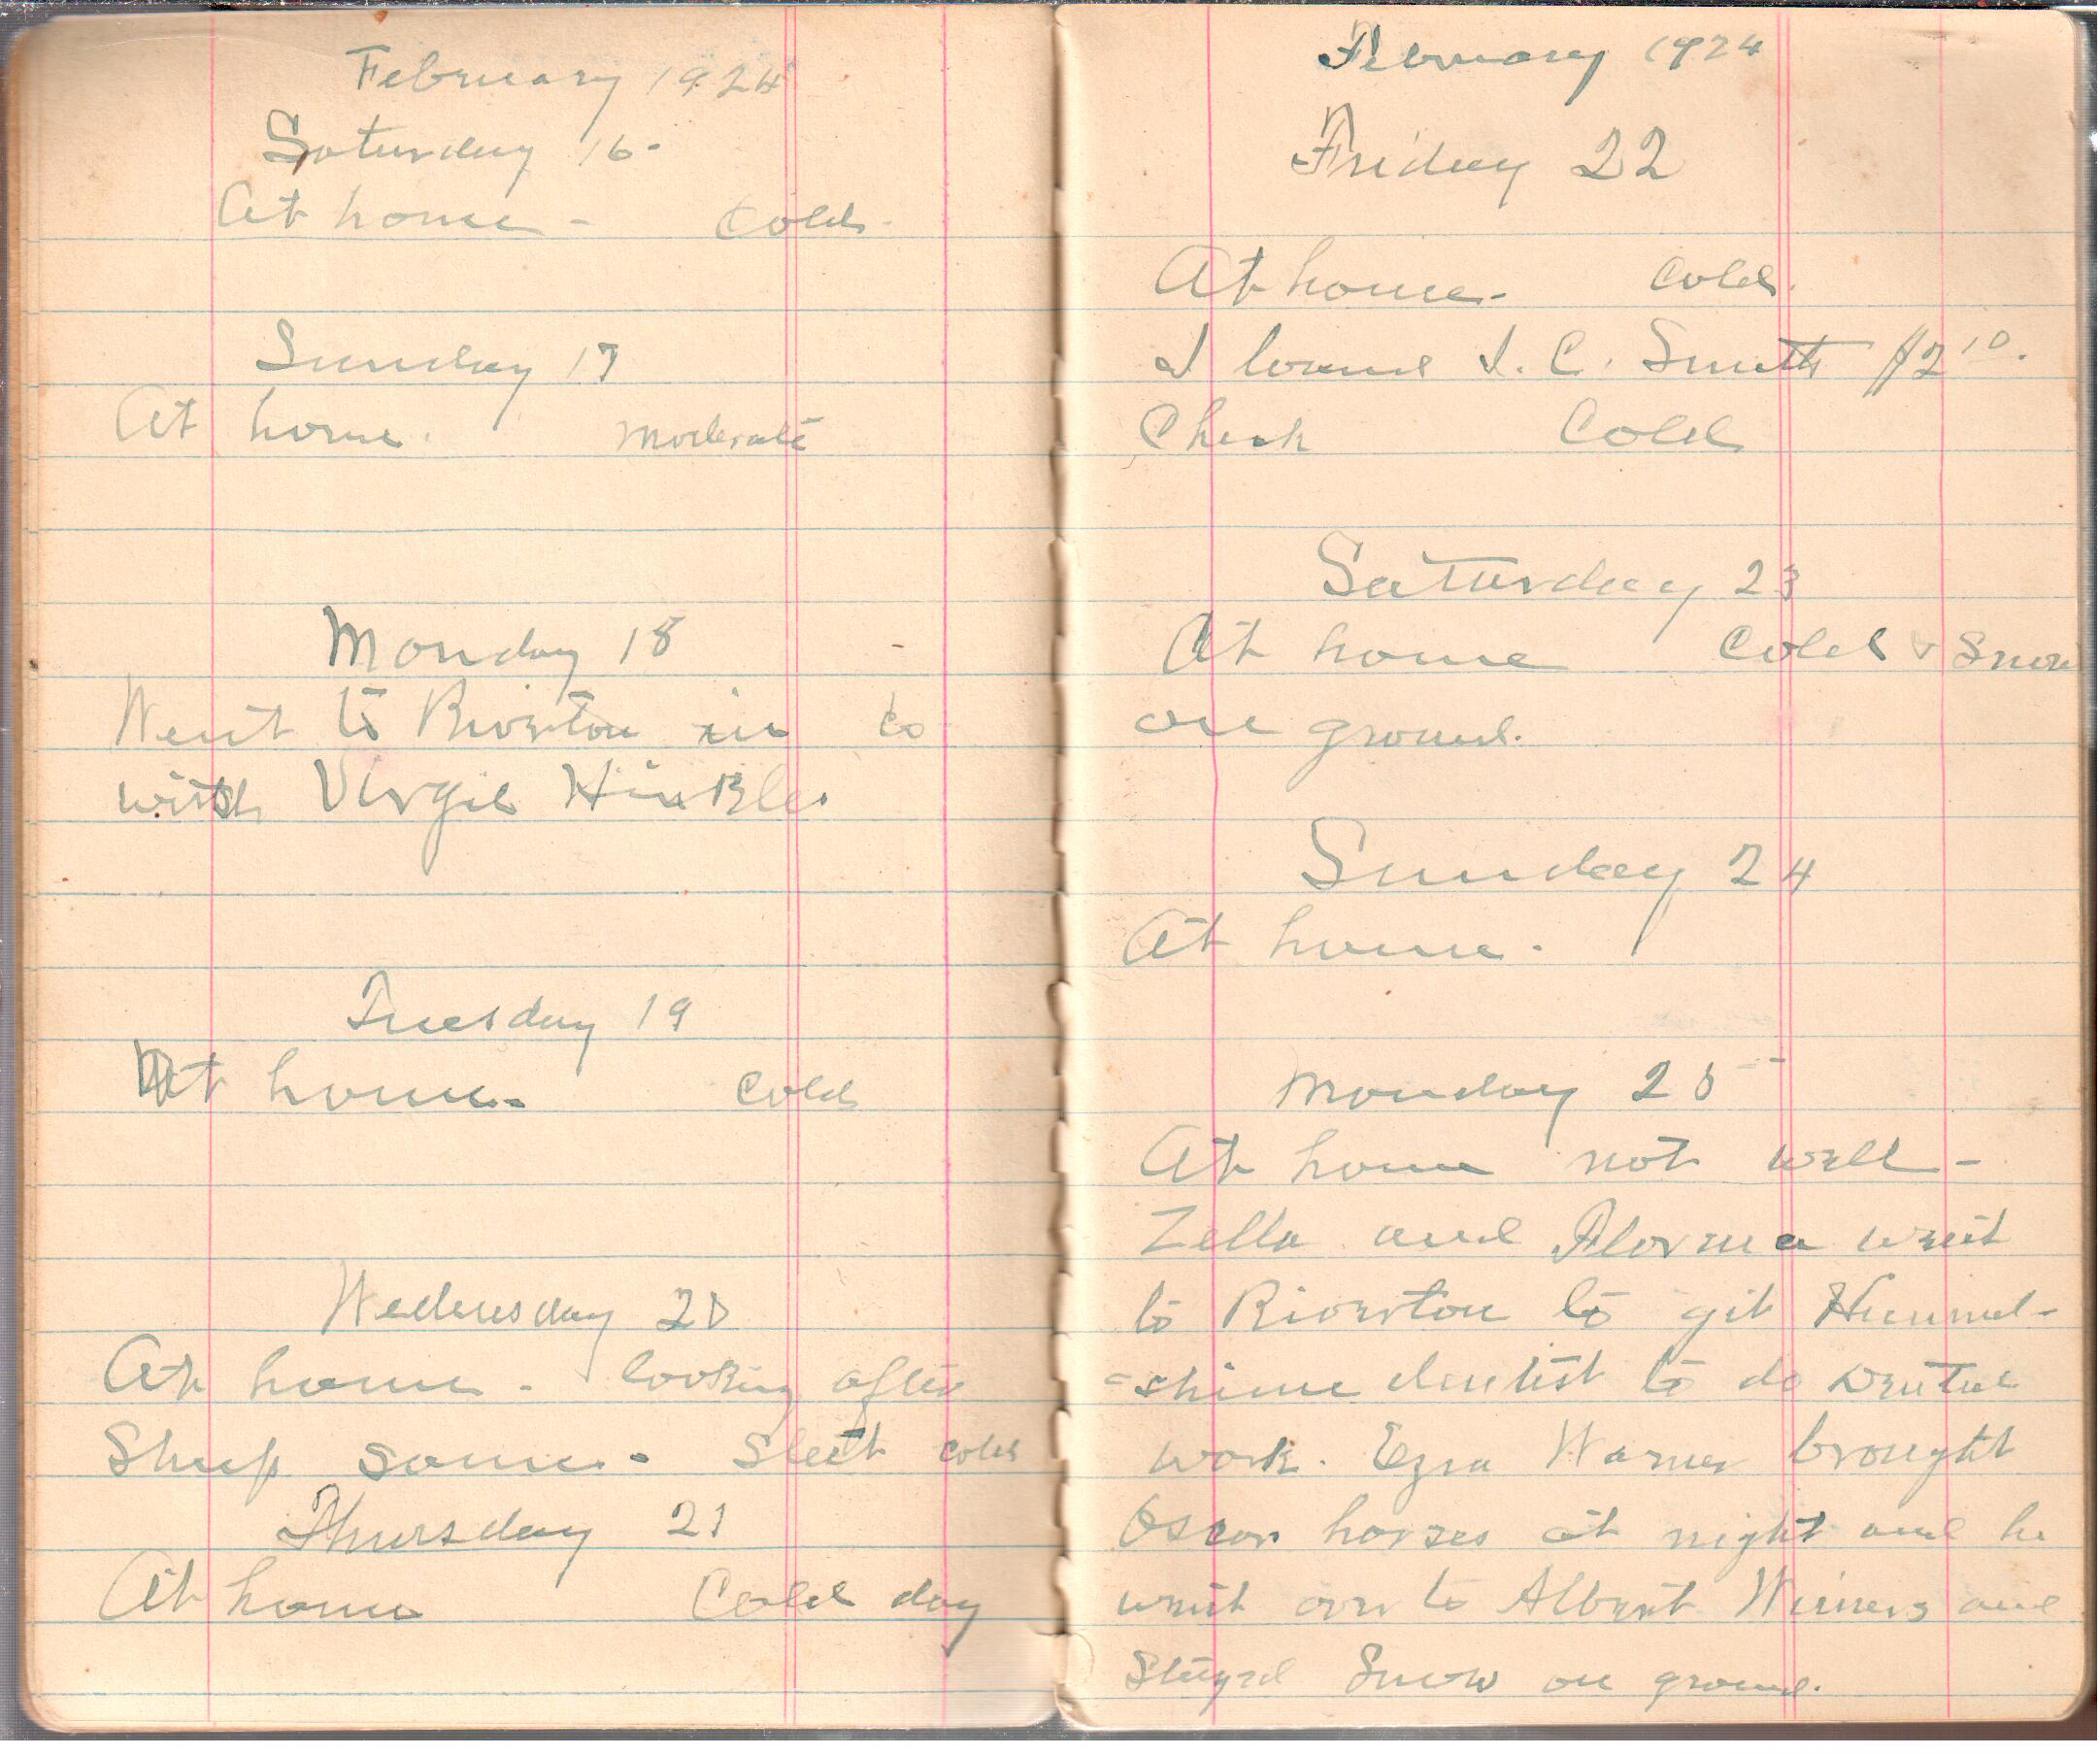 February 1924
Saturday 16-
At home - Cold.
Sunday 17
At home. moderate
Monday 18
Went to Riverton in to
with Virgil Hinkle.
Tuesday 19
At home. Cold
Wednesday 20
At home. looking after
Sheep some. Sleet cold
Thursday 21
At home Cold day
February 1924
Friday 22
At home. Cold.
I loaned I. C. Smith $2 10.
Check Cold
Saturday 23
At home Cold & Snow
on ground.
Sunday 24
At home.
Monday 25
At home not well -
Zella and went
to Riverton to git
dentist to do Dental
work. Ezra Warner brought
horses at night and he
went over to Albert and
Stayed Snow on ground.